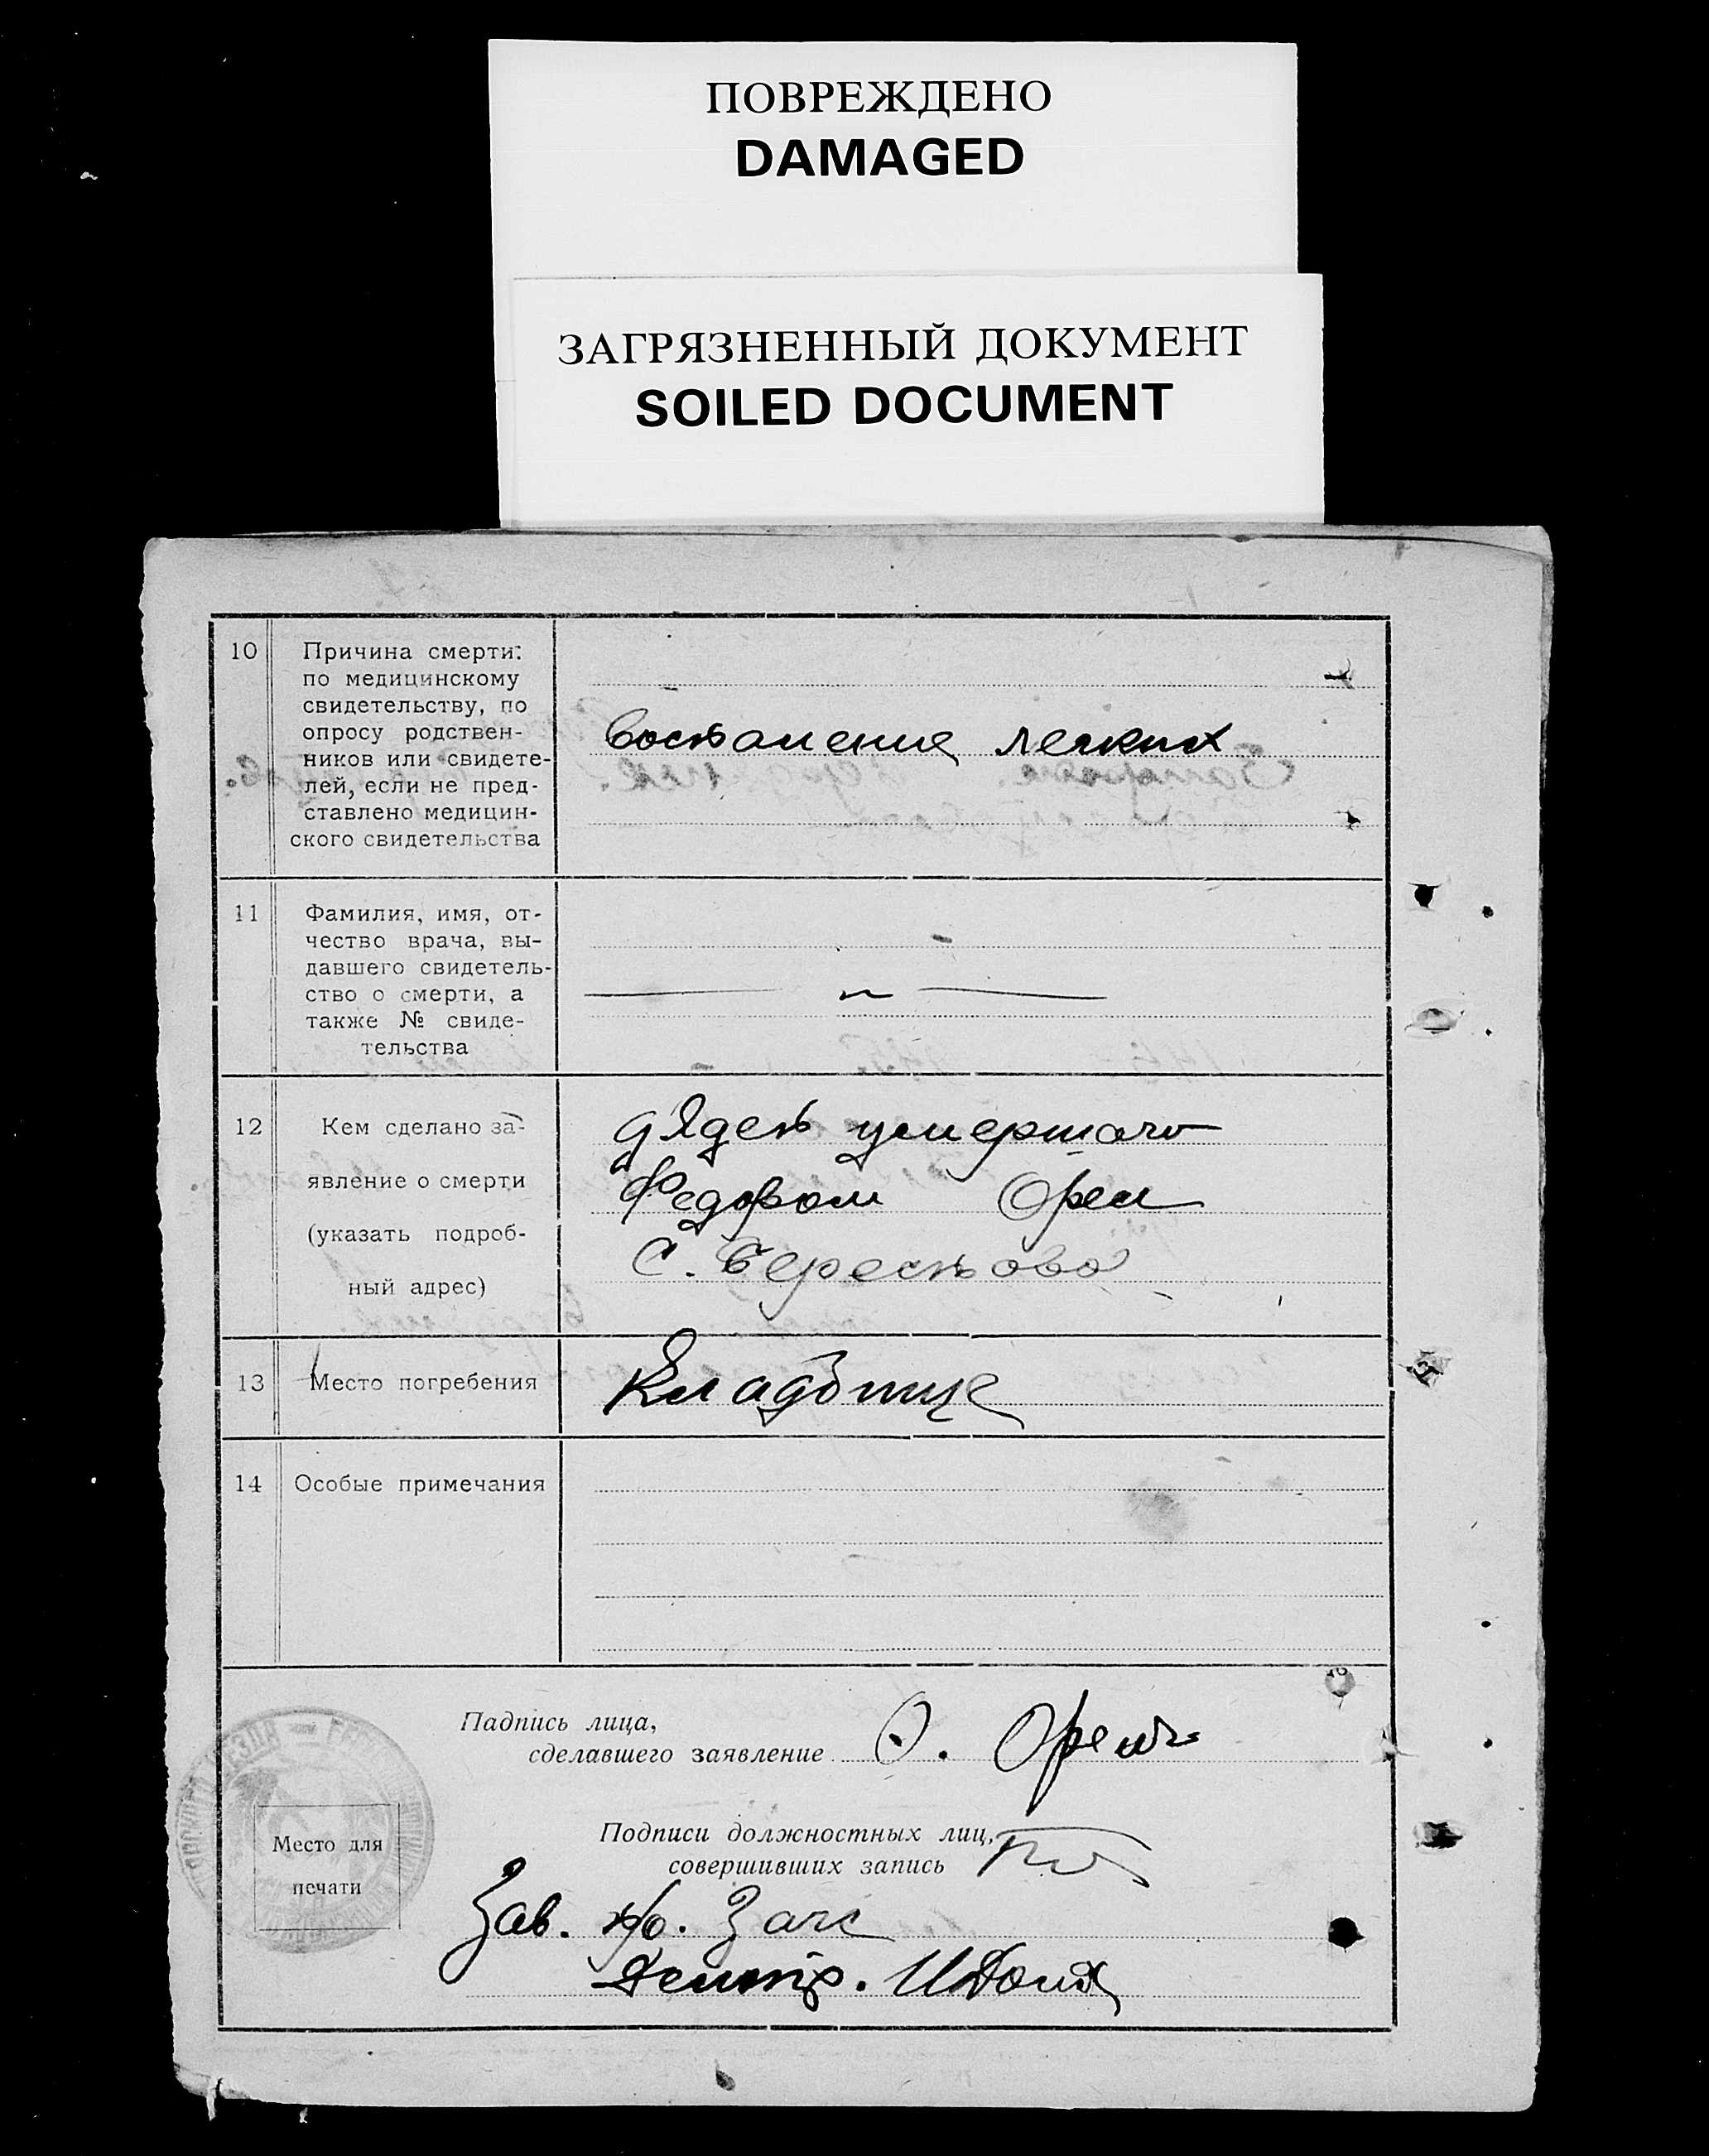 ПОВРЕЖДЕНО
DAMAGED
ЗАГРЯЗНЕННЫЙ ДОКУМЕНТ
SOILED DOCUMENT
10 Причина смерти:
по медицинскому
свидетельству, по
опросу родствен-
ников или свидете-
лей, если не пред-
ставлено медицин-
ского свидетельства
Воспаление легких
11 Фамилия, имя, от-
чество врача, вы-
давшего свидетель-
ство о смерти, а
также № свиде-
тельства
12 Кем сделано за-
явление о смерти
(указать подроб-
ный адрес)
дядей умершаго
Федором Орел
С.
13 Место погребения
Кладбище
14 Особые примечания
Падпись лица,
сделавшего заявление
О.
Подписи должностных лиц,
совершивших запись
Место для
печати
Зав. Загс